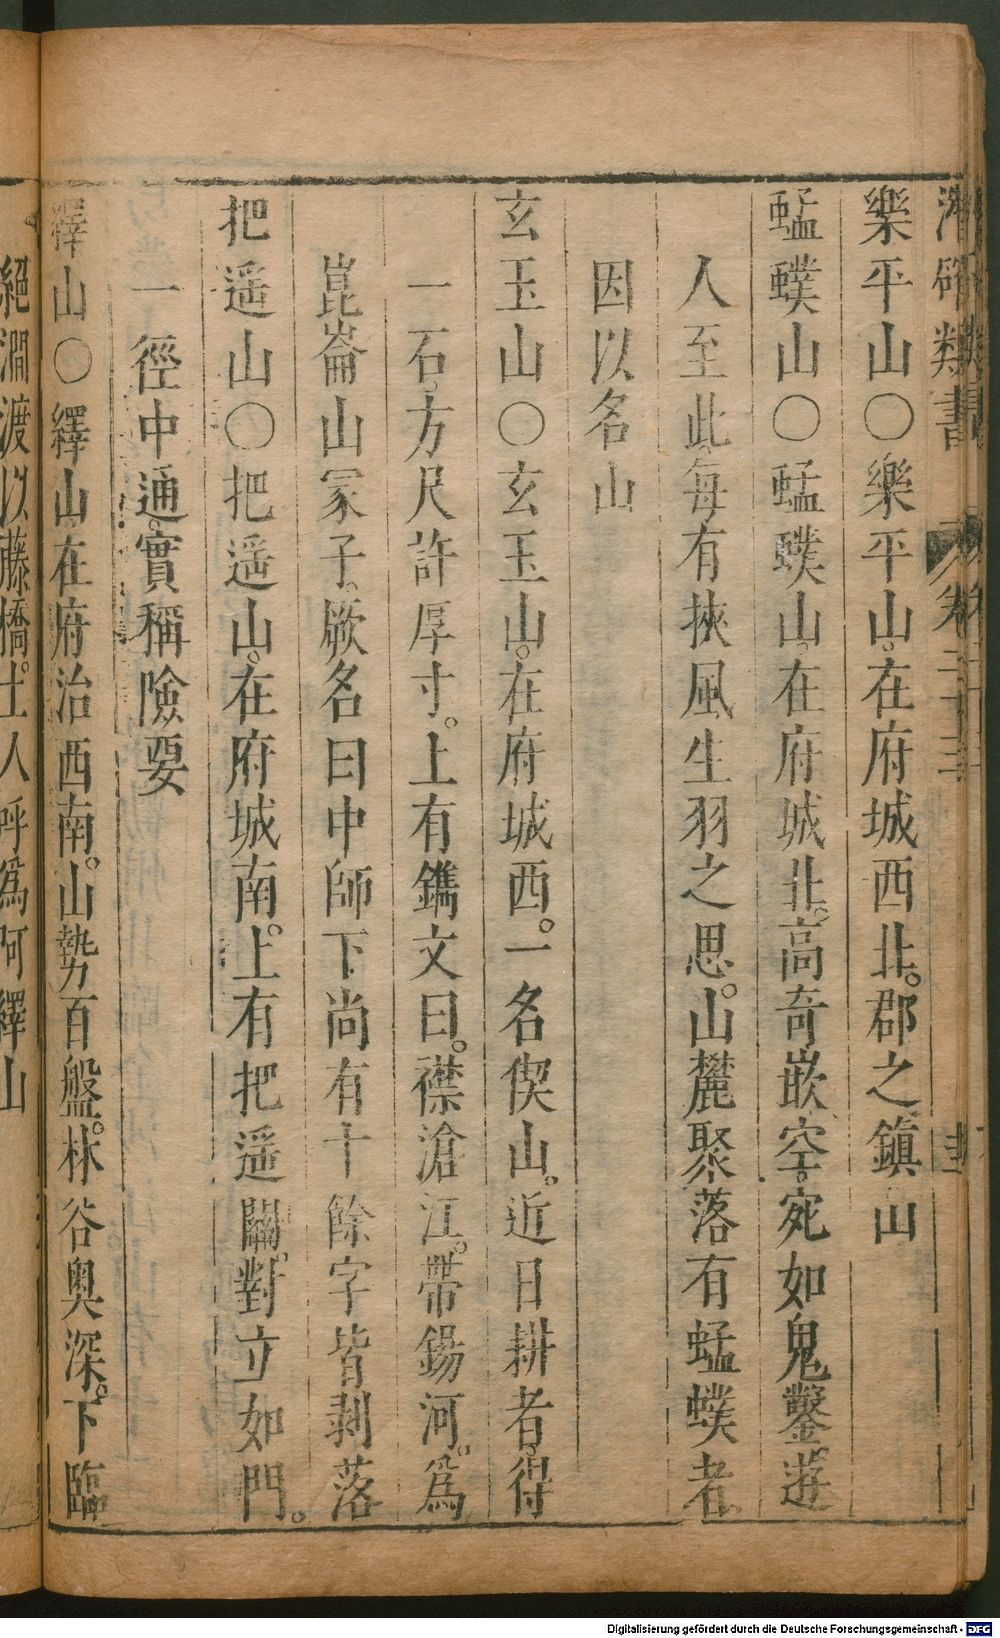 潛確類書 卷二十三
樂平山○樂平山。在府城西北。郡之鎮山
蜢蠓山○蜢蠓山。在府城北。高奇嵌空。宛如鬼鑿。遊
人至此。每有挾風生羽之思。山麓聚落有蜢蠓者。
因以名山
玄玉山○玄玉山。在府城西。一名偰山。近日耕者。得
一石。方尺許厚寸。上有鐫文曰。襟滄江。帶錫河。為
崑崙山冢子。厥名曰中師下尚有十餘字皆剥落
把遥山○把遥山。在府城南。上有把遥關。對立如門。
一徑中通。實稱險要
繹山○繹山。在府治西南。山勢百盤。林谷奧深。下臨
絕澗渡以藤橋。土人呼為阿繹山
Digitalisierung gefördert durch die Deutsche Forschungsgemeinschaft - DFG